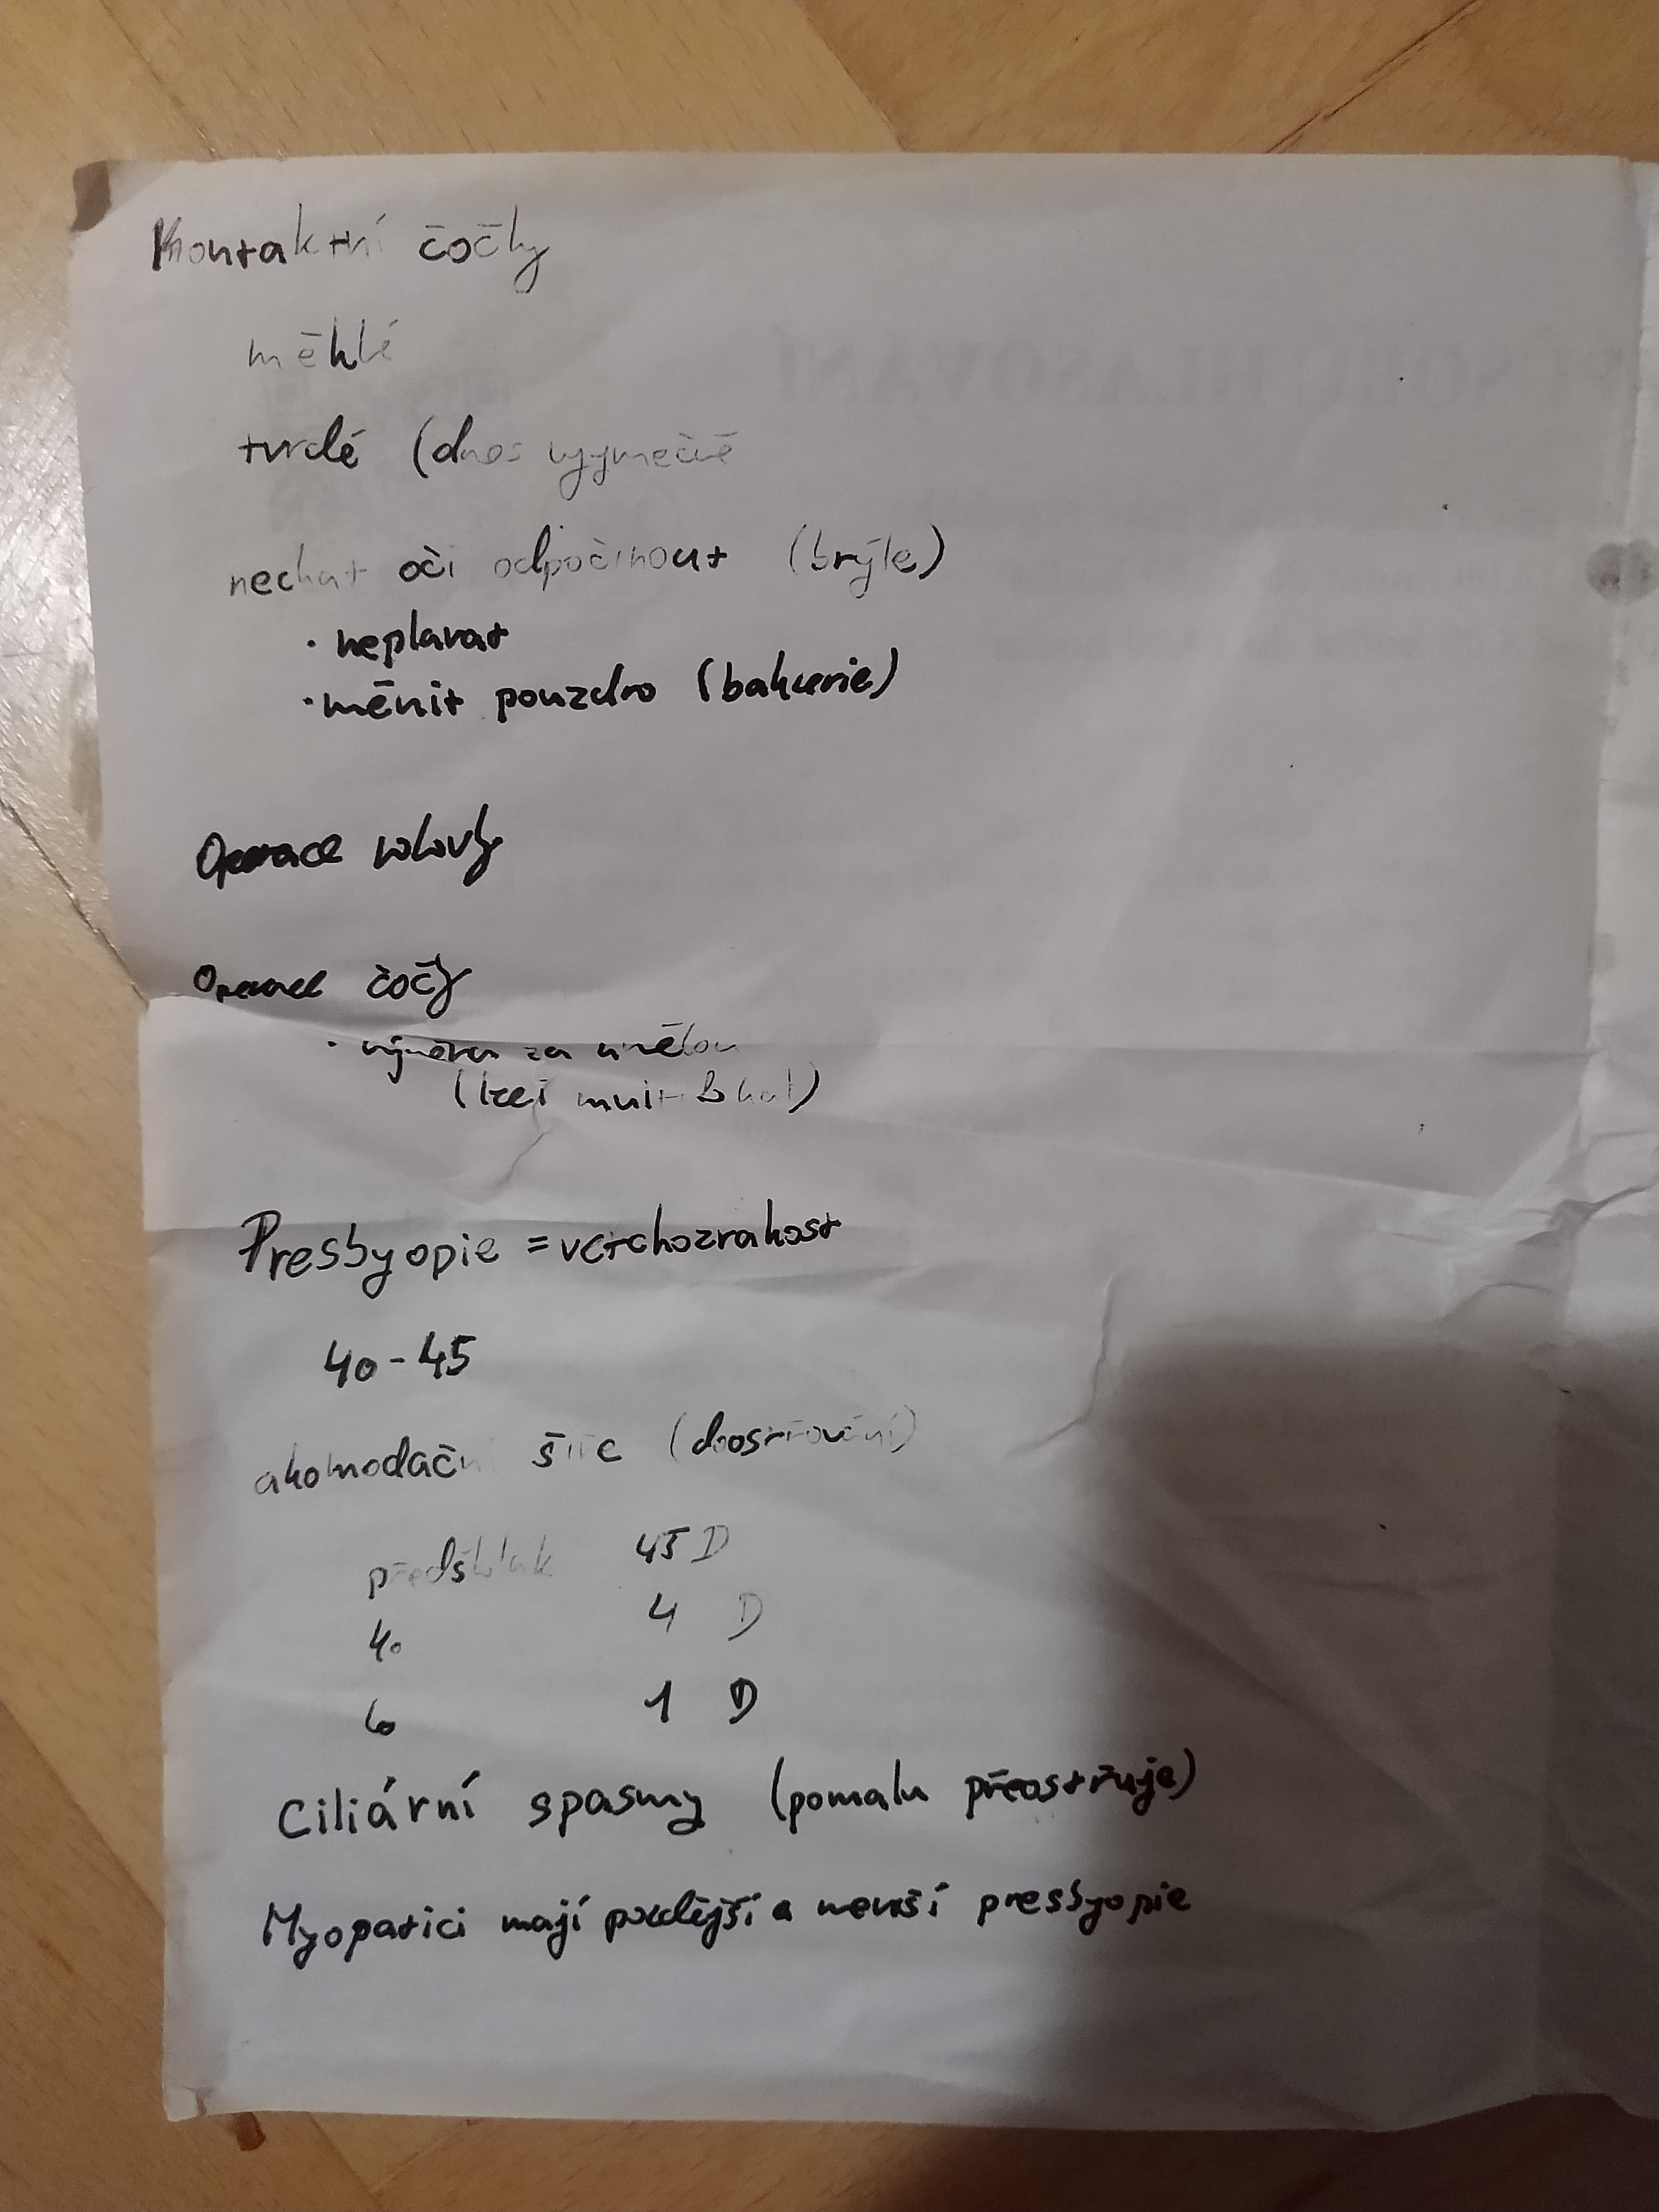 Kontaktní čočky
měkké
tvrdé (dnes vyjmečně
nechat oči odpočinout (brýle)
· neplavat
· měnit pouzdro (bakterie)
Operace rohovky
Operace čočky
· výměna za umělou
(lze i multifokal)
Presbyopie = vetchozrakost
40-45
akomodační šíře (doostřování)
předškolák 45 D
40 4 D
60 1 D
Ciliární spasmy (pomalu přeostřuje)
Myopatici mají pozdější a menší presbyopie